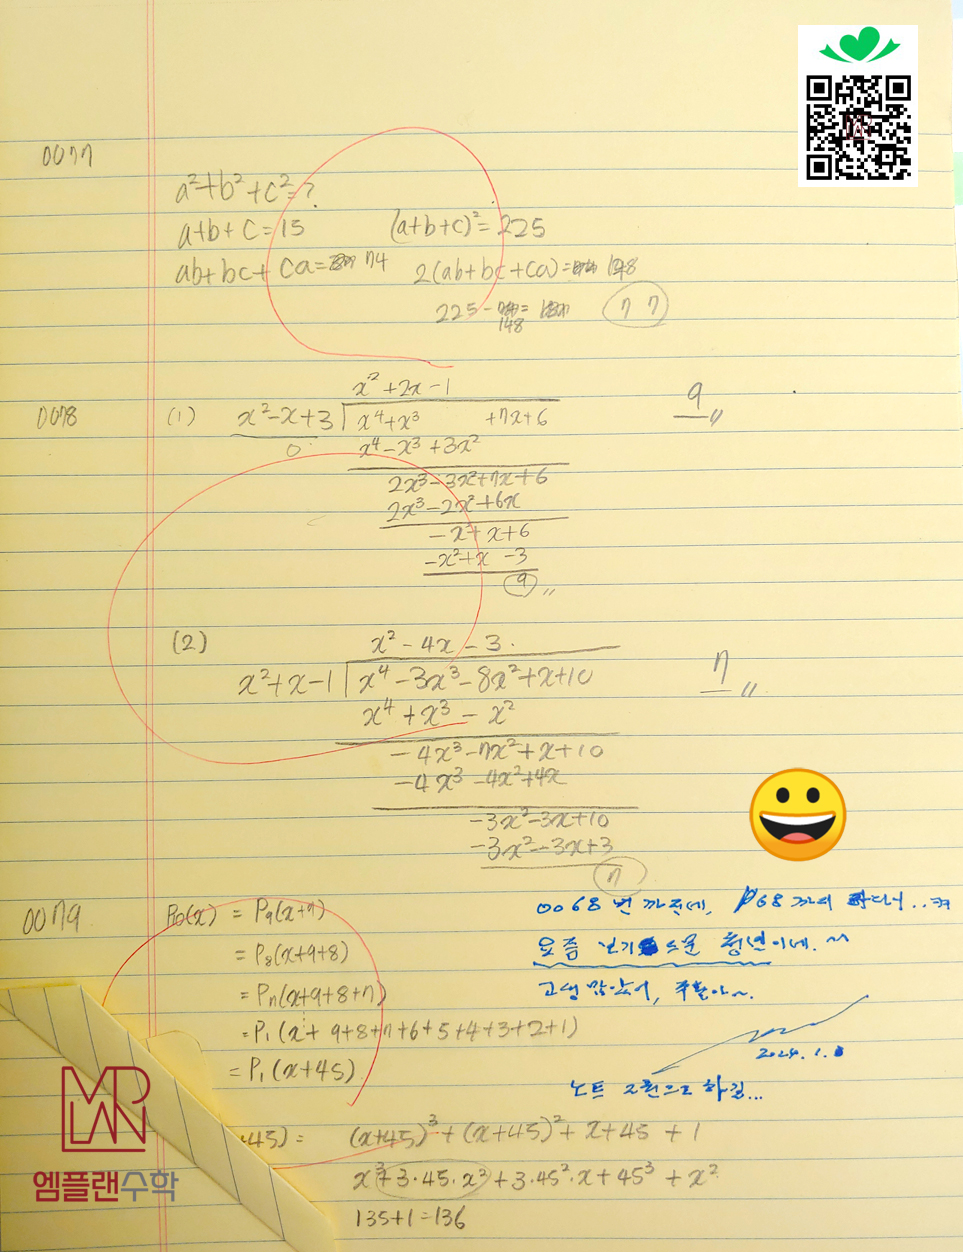 0077
a²+b²+c²=?
a+b+c=15 (a+b+c)²=225
ab+bc+ca= 74 2(ab+bc+ca)= 148
225- = 77
148
0078 (1) x²+2x-1
x²-x+3 x⁴+x³ +7x+6 9
0 x⁴-x³+3x²
2x³-3x²+7x+6
2x³-2x²+6x
-x²+x+6
-x²+x -3
9
(2) x²-4x-3
x²+x-1 x⁴-3x³-8x²+x+10 7
x⁴+x³-x²
-4x³-7x²+x+10
-4x³-4x²+4x
-3x²-3x+10
-3x²-3x+3
7
0079 P₁₀(x) = P₉(x+9)
= P₈(x+9+8)
= P₇(x+9+8+7)
= P₁(x+9+8+7+6+5+4+3+2+1)
= P₁(x+45)
0068번 까진데, P68까지 하다니..
요즘 보기 드문 청년이네.~
고생 많았어, 주활아~.
2024.1.
노트 2권으로 하길...
+45)= (x+45)³+(x+45)²+x+45+1
x³+3·45·x²+3·45²·x+45³+x²
135+1=136
MPLAN
엠플랜수학